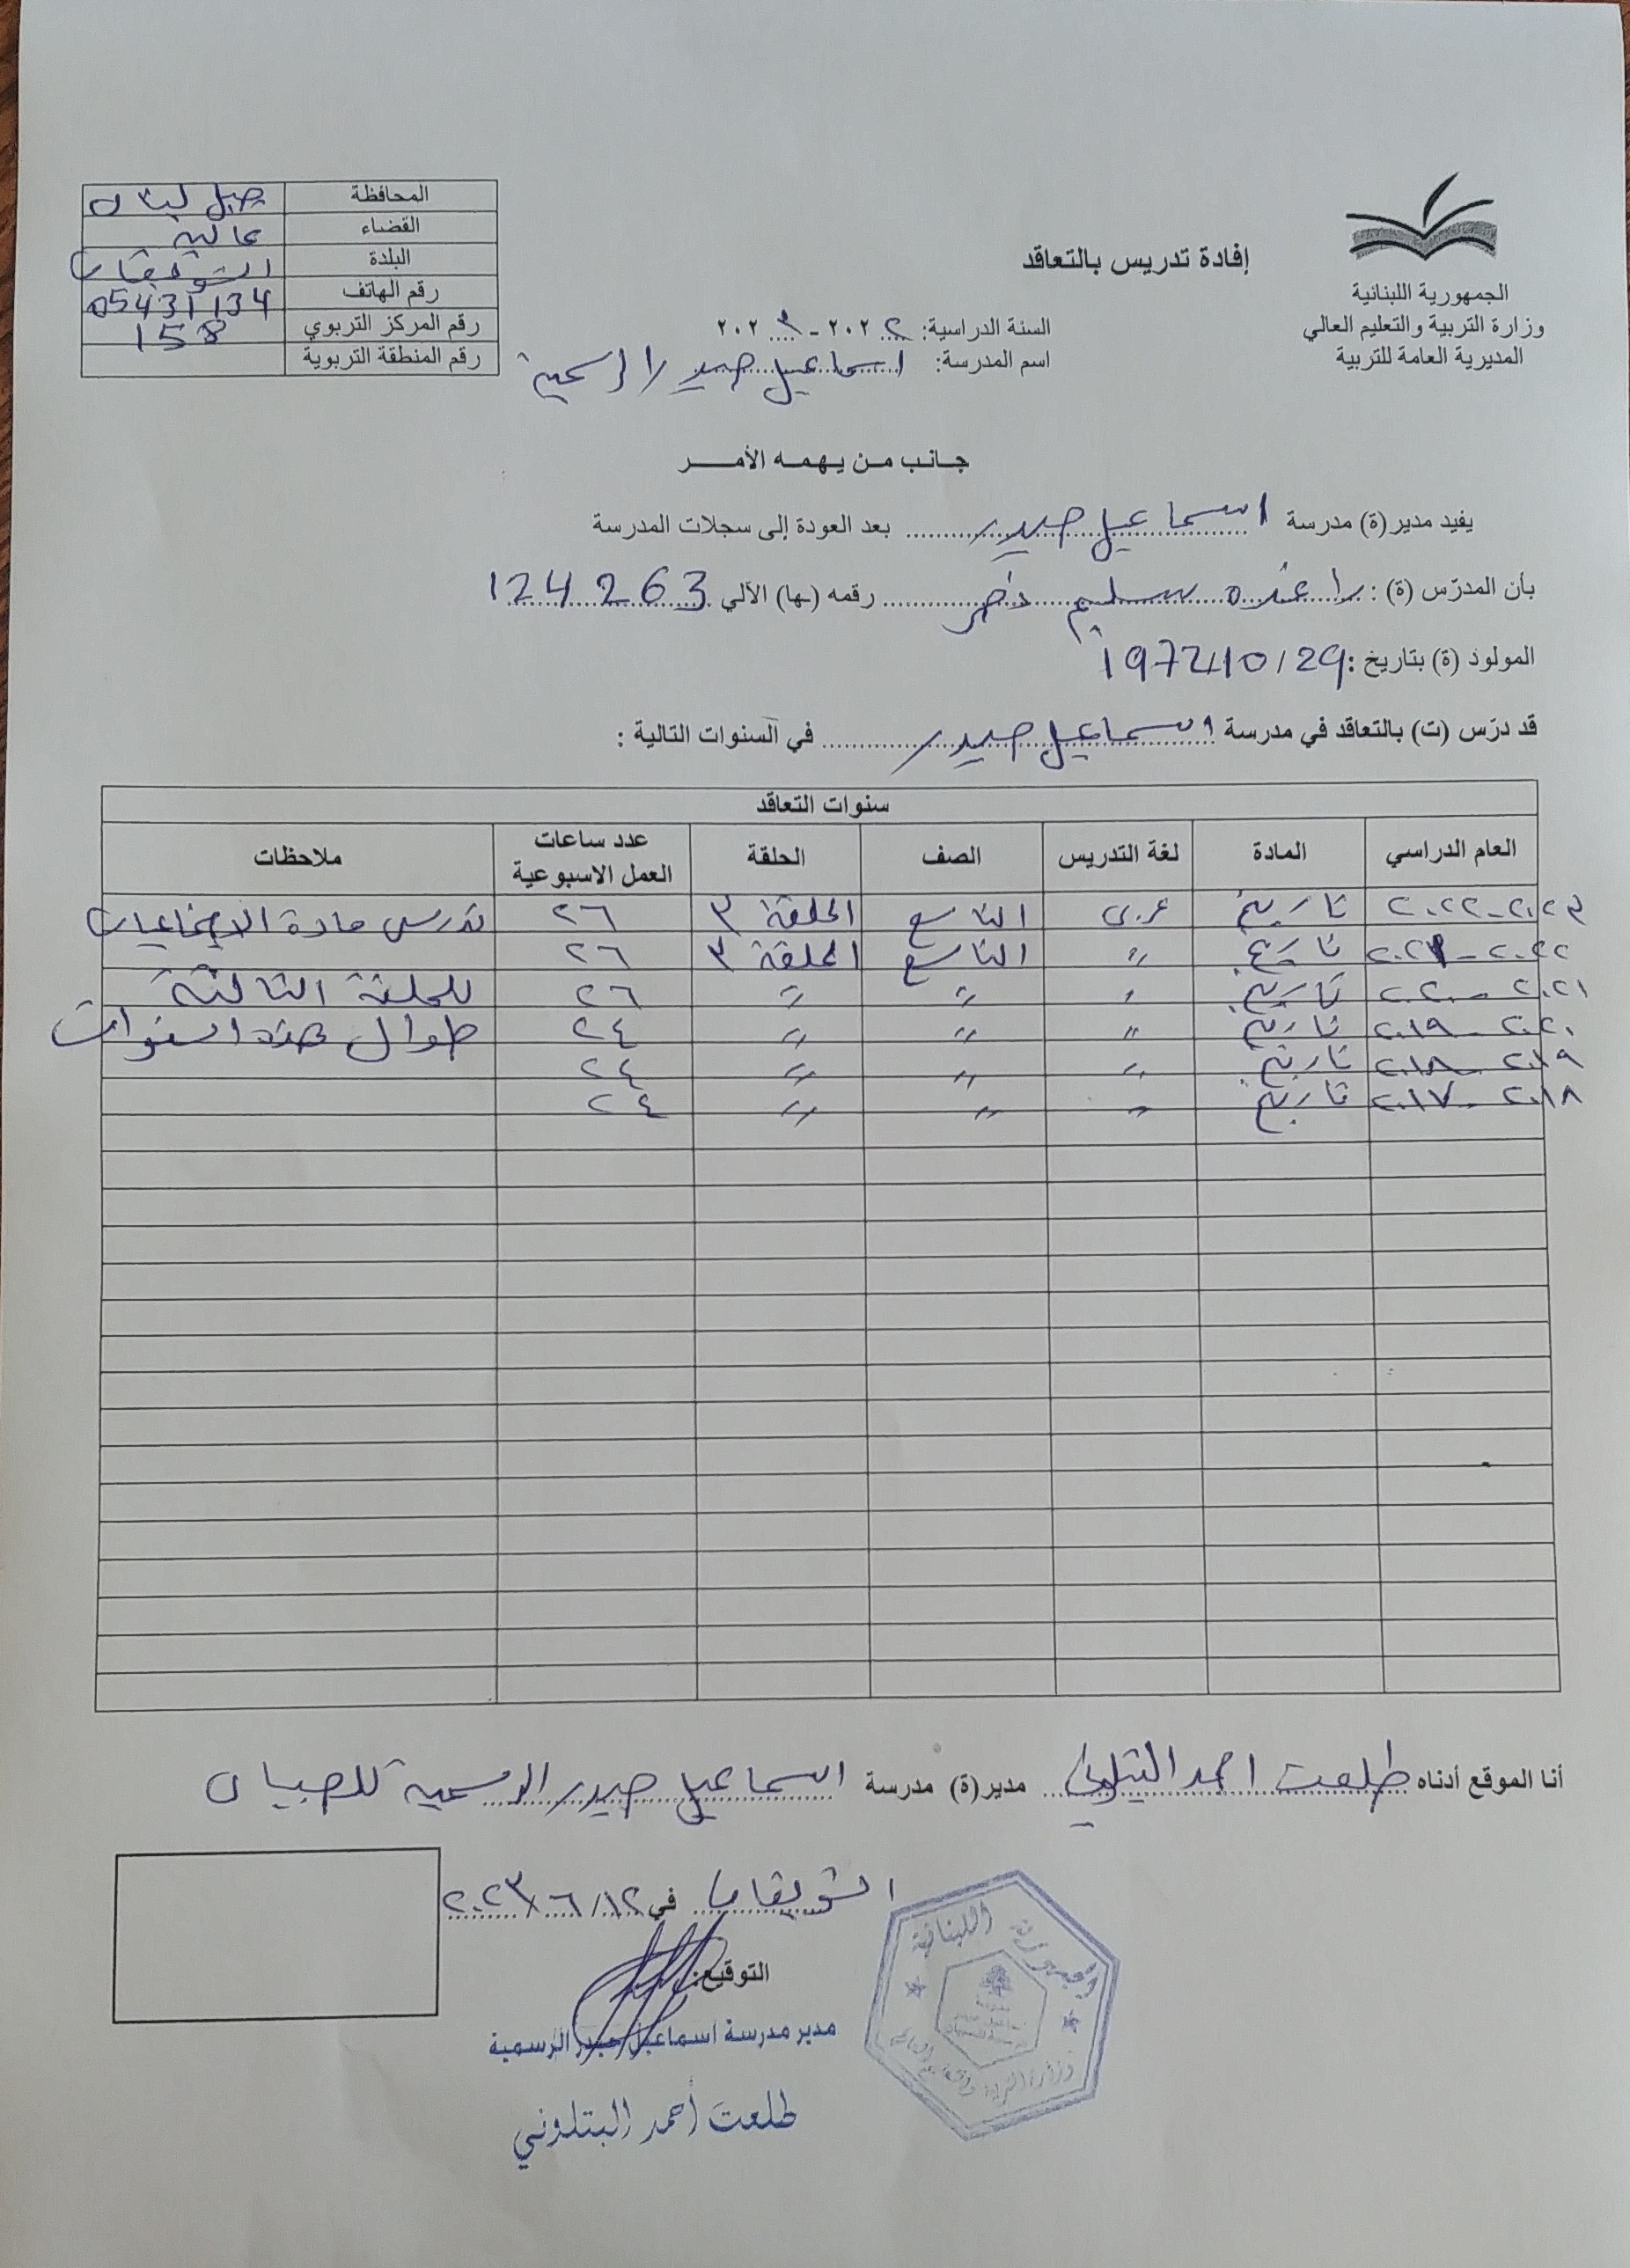 الجمهورية اللبنانية
وزارة التربية والتعليم العالي
المديرية العامة للتربية
إفادة تدريس بالتعاقد
السنة الدراسية: ٢٠٢٢ - ٢٠٢٣
اسم المدرسة: اسماعيل حيدر الرسمية
المحافظة جبل لبنان
القضاء عاليه
البلدة الشويفات
رقم الهاتف 05431134
رقم المركز التربوي 158
رقم المنطقة التربوية
جانب من يهمه الأمر
يفيد مدير(ة) مدرسة اسماعيل حيدر بعد العودة إلى سجلات المدرسة
بأن المدرّس (ة): راغده سليم رقمه (ـها) الآلي 124263
المولود (ة) بتاريخ: 1972/10/29
قد درّس (ت) بالتعاقد في مدرسة اسماعيل حيدر في السنوات التالية :
سنوات التعاقد
العام الدراسي المادة لغة التدريس الصف الحلقة عدد ساعات العمل الاسبوعية ملاحظات
٢٠٢٢-٢٠٢٣ تاريخ عربي التاسع الحلقة ٣ ٢٦ تدرس مادة الاجتماعيات
٢٠٢١-٢٠٢٢ تاريخ " التاسع الحلقة ٣ ٢٦
٢٠٢٠-٢٠٢١ تاريخ " " " ٢٦ للحلقة الثالثة
٢٠١٩-٢٠٢٠ تاريخ " " " ٢٤ طوال هذه السنوات
٢٠١٨-٢٠١٩ تاريخ " " " ٢٤
٢٠١٧-٢٠١٨ تاريخ " " " ٢٤
أنا الموقع أدناه طلعت احمد البتلوني مدير(ة) مدرسة اسماعيل حيدر الرسمية للصبيان
الشويفات في ١٢/٦/٢٠٢٣
التوقيع:
مدير مدرسة اسماعيل حيدر الرسمية
طلعت أحمد البتلوني
الجمهورية اللبنانية